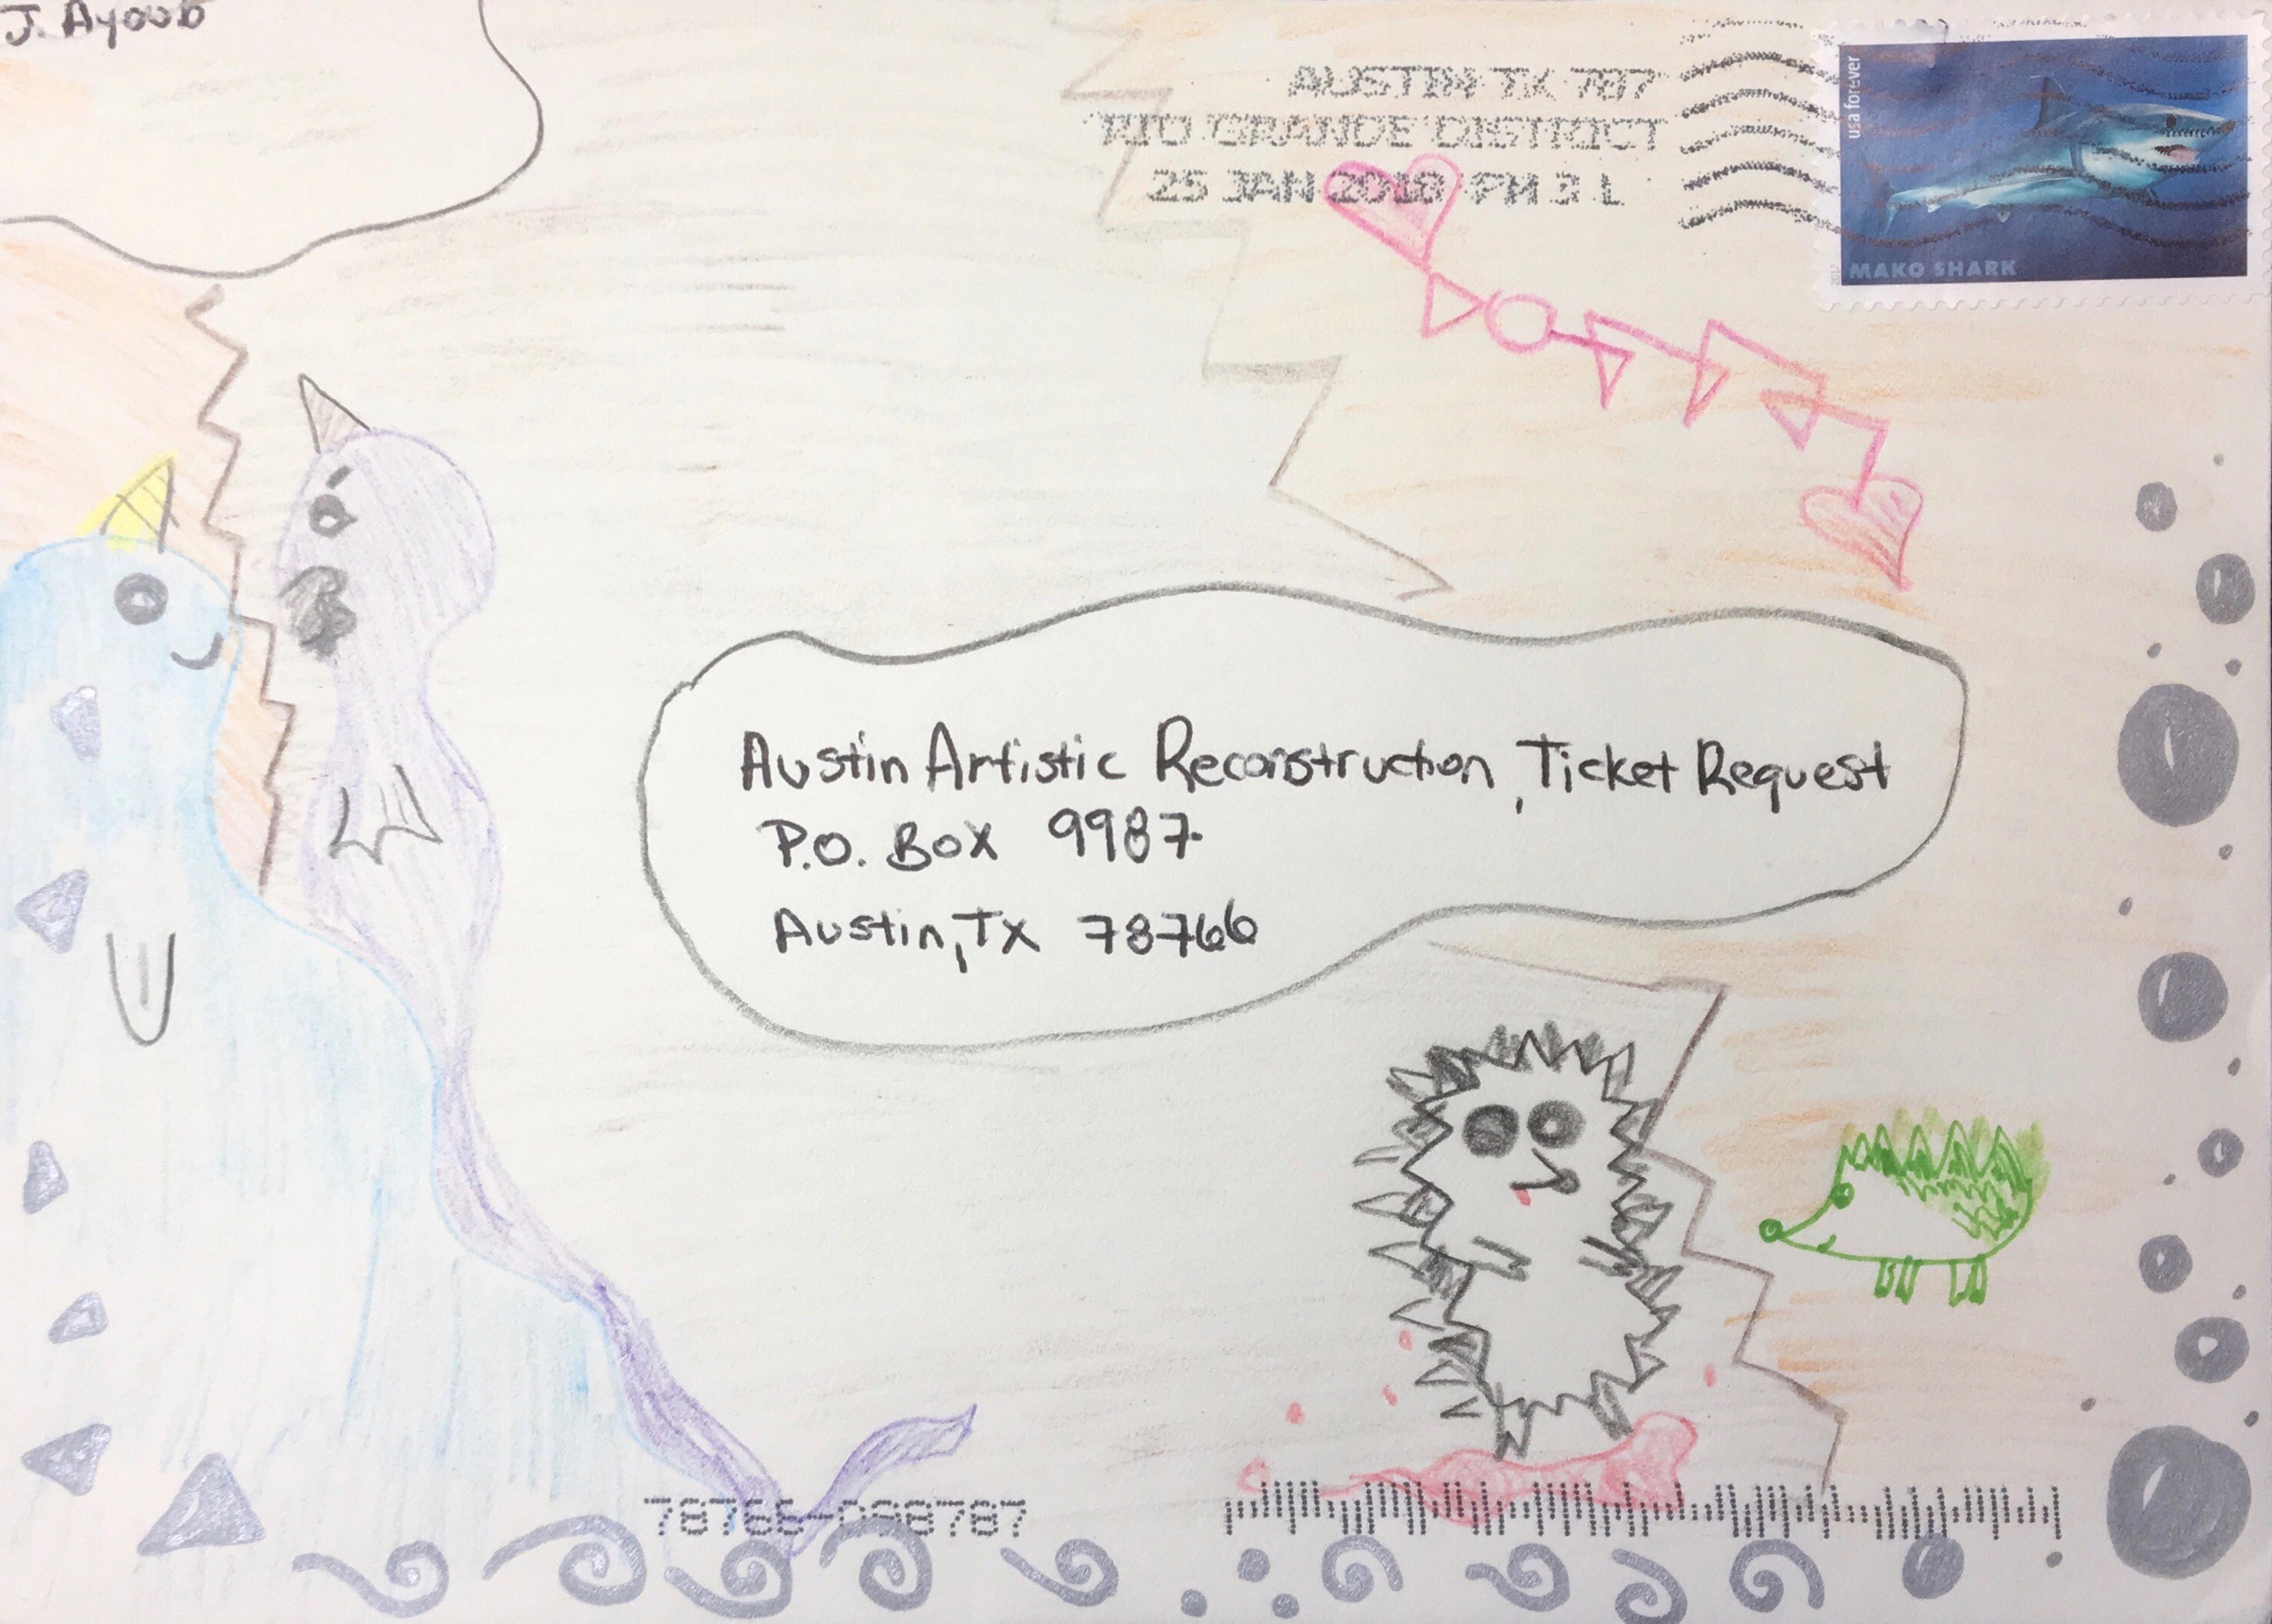 J. Ayoub
AUSTIN TX 787
RIO GRANDE DISTRICT
25 JAN 2018 PM 3 L
usa forever
MAKO SHARK
2017
Austin Artistic Reconstruction, Ticket Request
P.O. Box 9987
Austin, Tx 78766
78766-998787